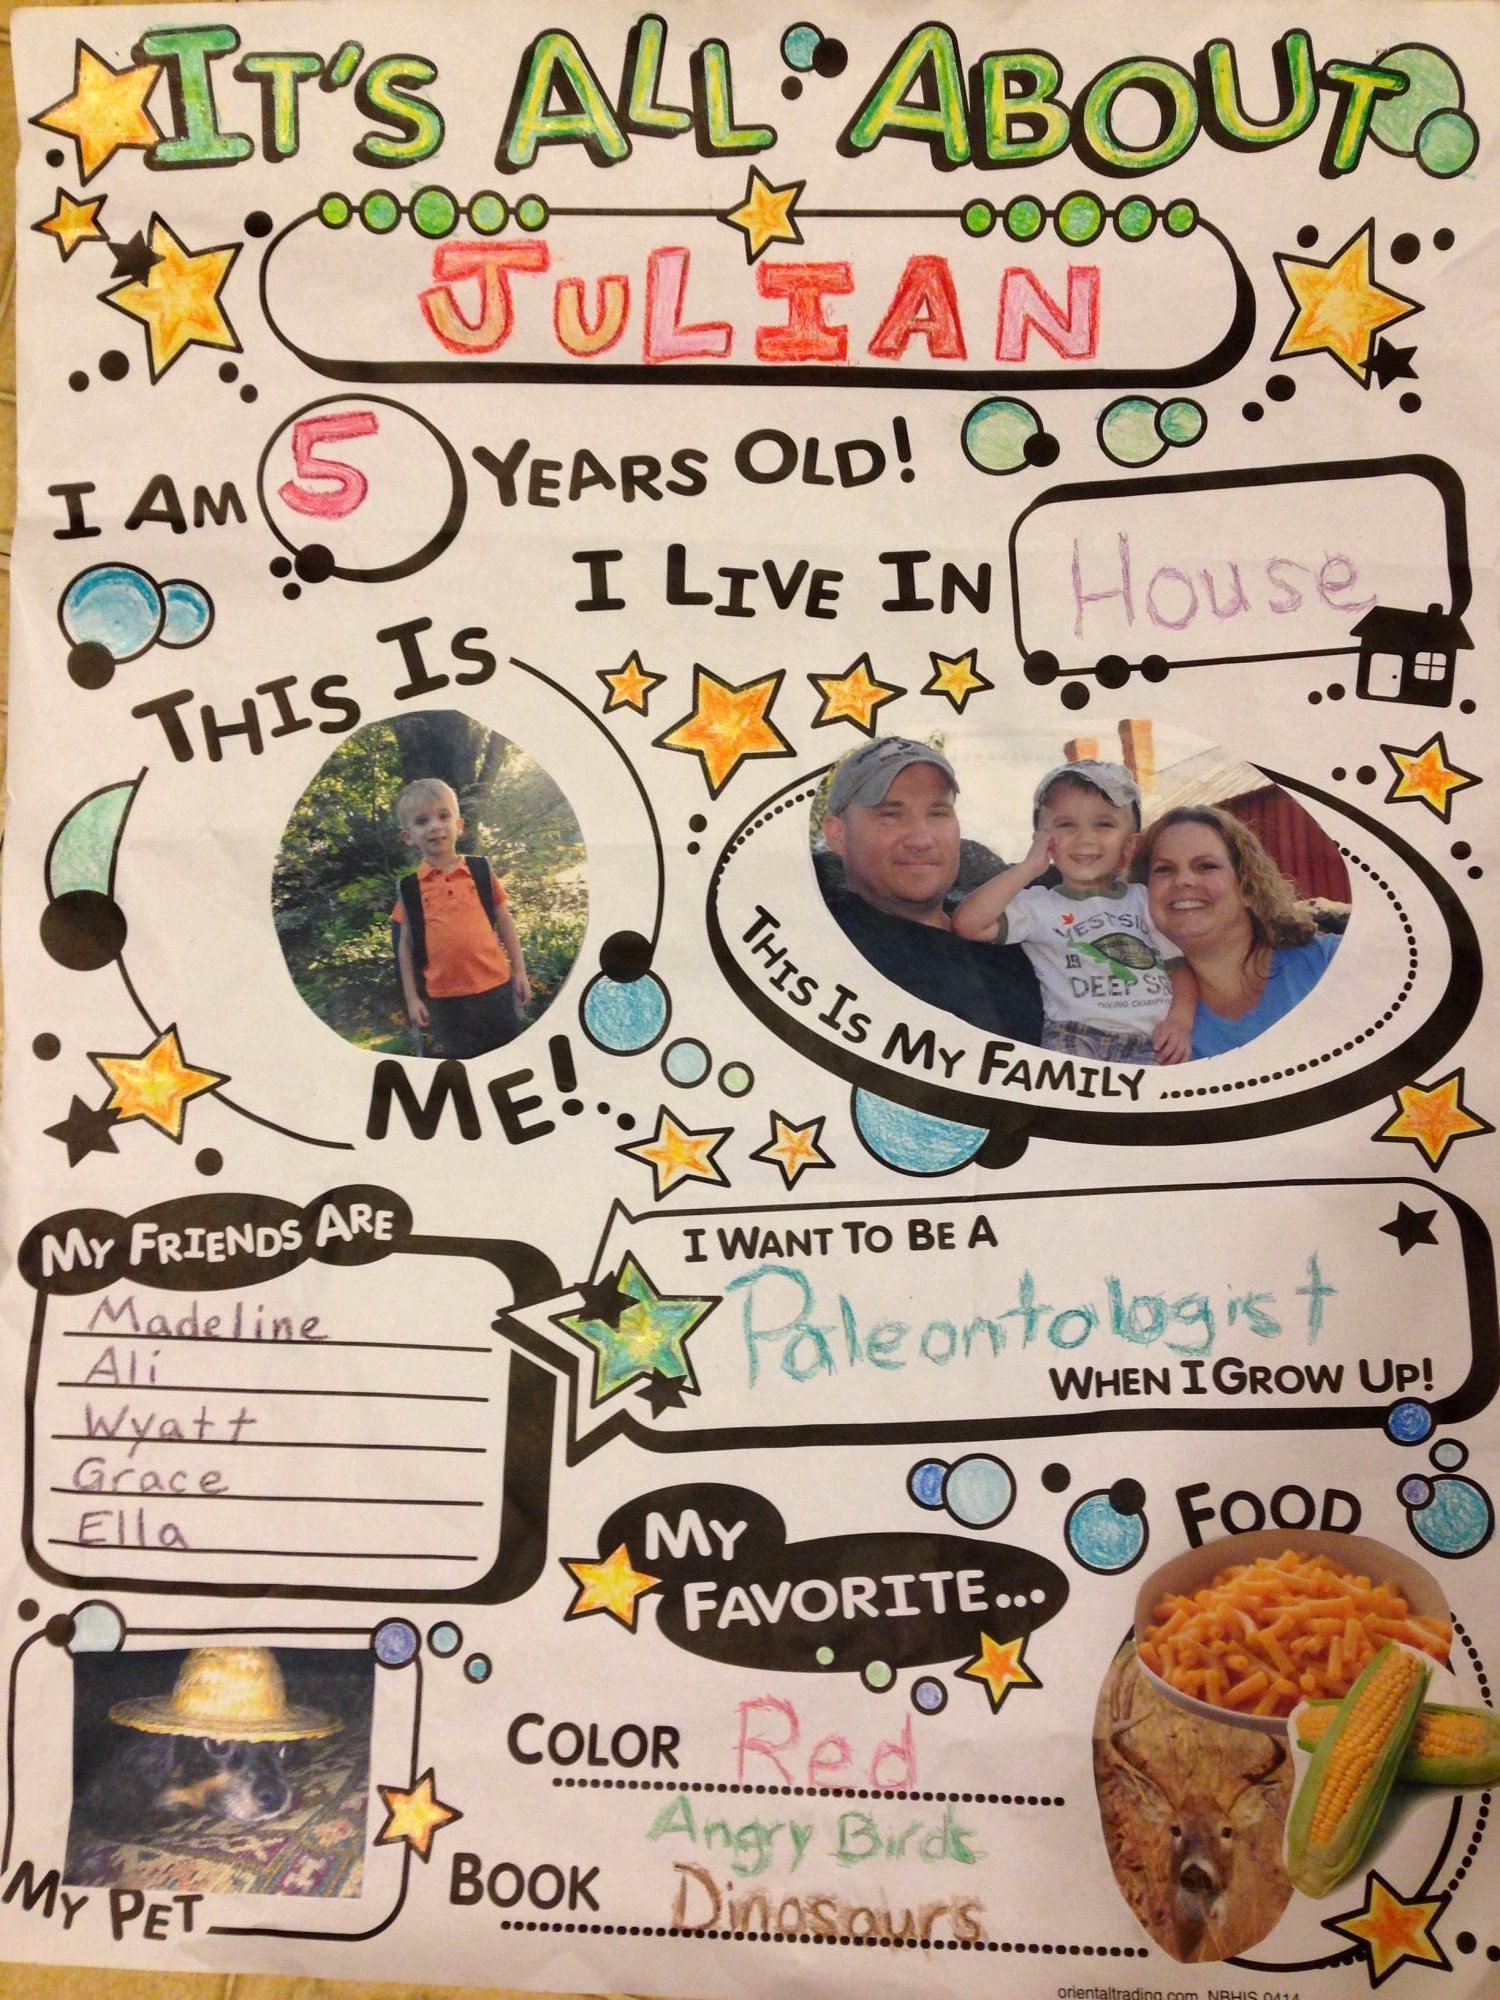 IT'S ALL ABOUT
JULIAN
I AM 5 YEARS OLD!
I LIVE IN House
THIS IS
ME!
THIS IS MY FAMILY
WESTSIDE
19
DEEP S
MY FRIENDS ARE
Madeline
Ali
Wyatt
Grace
Ella
I WANT TO BE A
Paleontologist
WHEN I GROW UP!
MY
FAVORITE...
FOOD
COLOR Red
Angry Birds
BOOK Dinosaurs
MY PET
orientaltrading.com NBHIS 0414